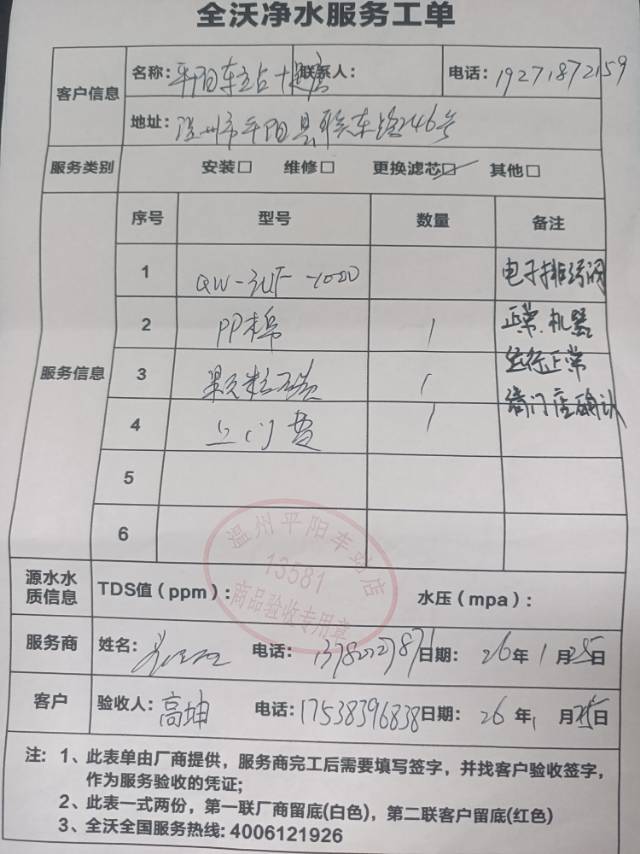 全沃净水服务工单
客户信息 名称：平阳车站十店 联系人： 电话：19271872159
地址：温州市平阳县联东路246号
服务类别 安装□ 维修□ 更换滤芯☑ 其他□
服务信息 序号 型号 数量 备注
1 QW-3UF-1000 电子排污阀
2 PP棉 1 正常.机器
3 颗粒 1 运行正常
4 上门费 1 请门店确认
5
6
温州平阳车站店
13581
商品验收专用章
源水水质信息 TDS值（ppm）： 水压（mpa）：
服务商 姓名： 电话： 日期：26年1月25日
客户 验收人：高坤 电话：17538396838 日期：26年1月25日
注：1、此表单由厂商提供，服务商完工后需要填写签字，并找客户验收签字，
作为服务验收的凭证；
2、此表一式两份，第一联厂商留底(白色)，第二联客户留底(红色)
3、全沃全国服务热线: 4006121926